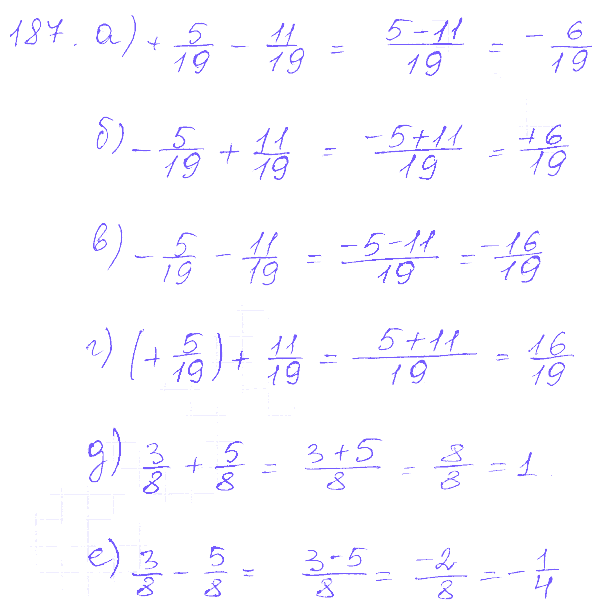 187. а) + 5/19 - 11/19 = (5-11)/19 = - 6/19
б) - 5/19 + 11/19 = (-5+11)/19 = +6/19
в) - 5/19 - 11/19 = (-5-11)/19 = -16/19
г) (+ 5/19) + 11/19 = (5+11)/19 = 16/19
д) 3/8 + 5/8 = (3+5)/8 = 8/8 = 1
е) 3/8 - 5/8 = (3-5)/8 = -2/8 = - 1/4